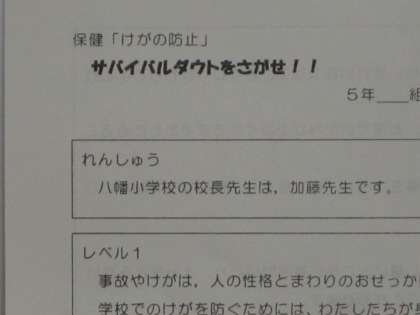 保健「けがの防止」
サバイバルダウトをさがせ！！
５年＿＿組
れんしゅう
八幡小学校の校長先生は，加藤先生です。
レベル１
事故やけがは，人の性格とまわりのおせっか
学校でのけがを防ぐためには，わたしたちが